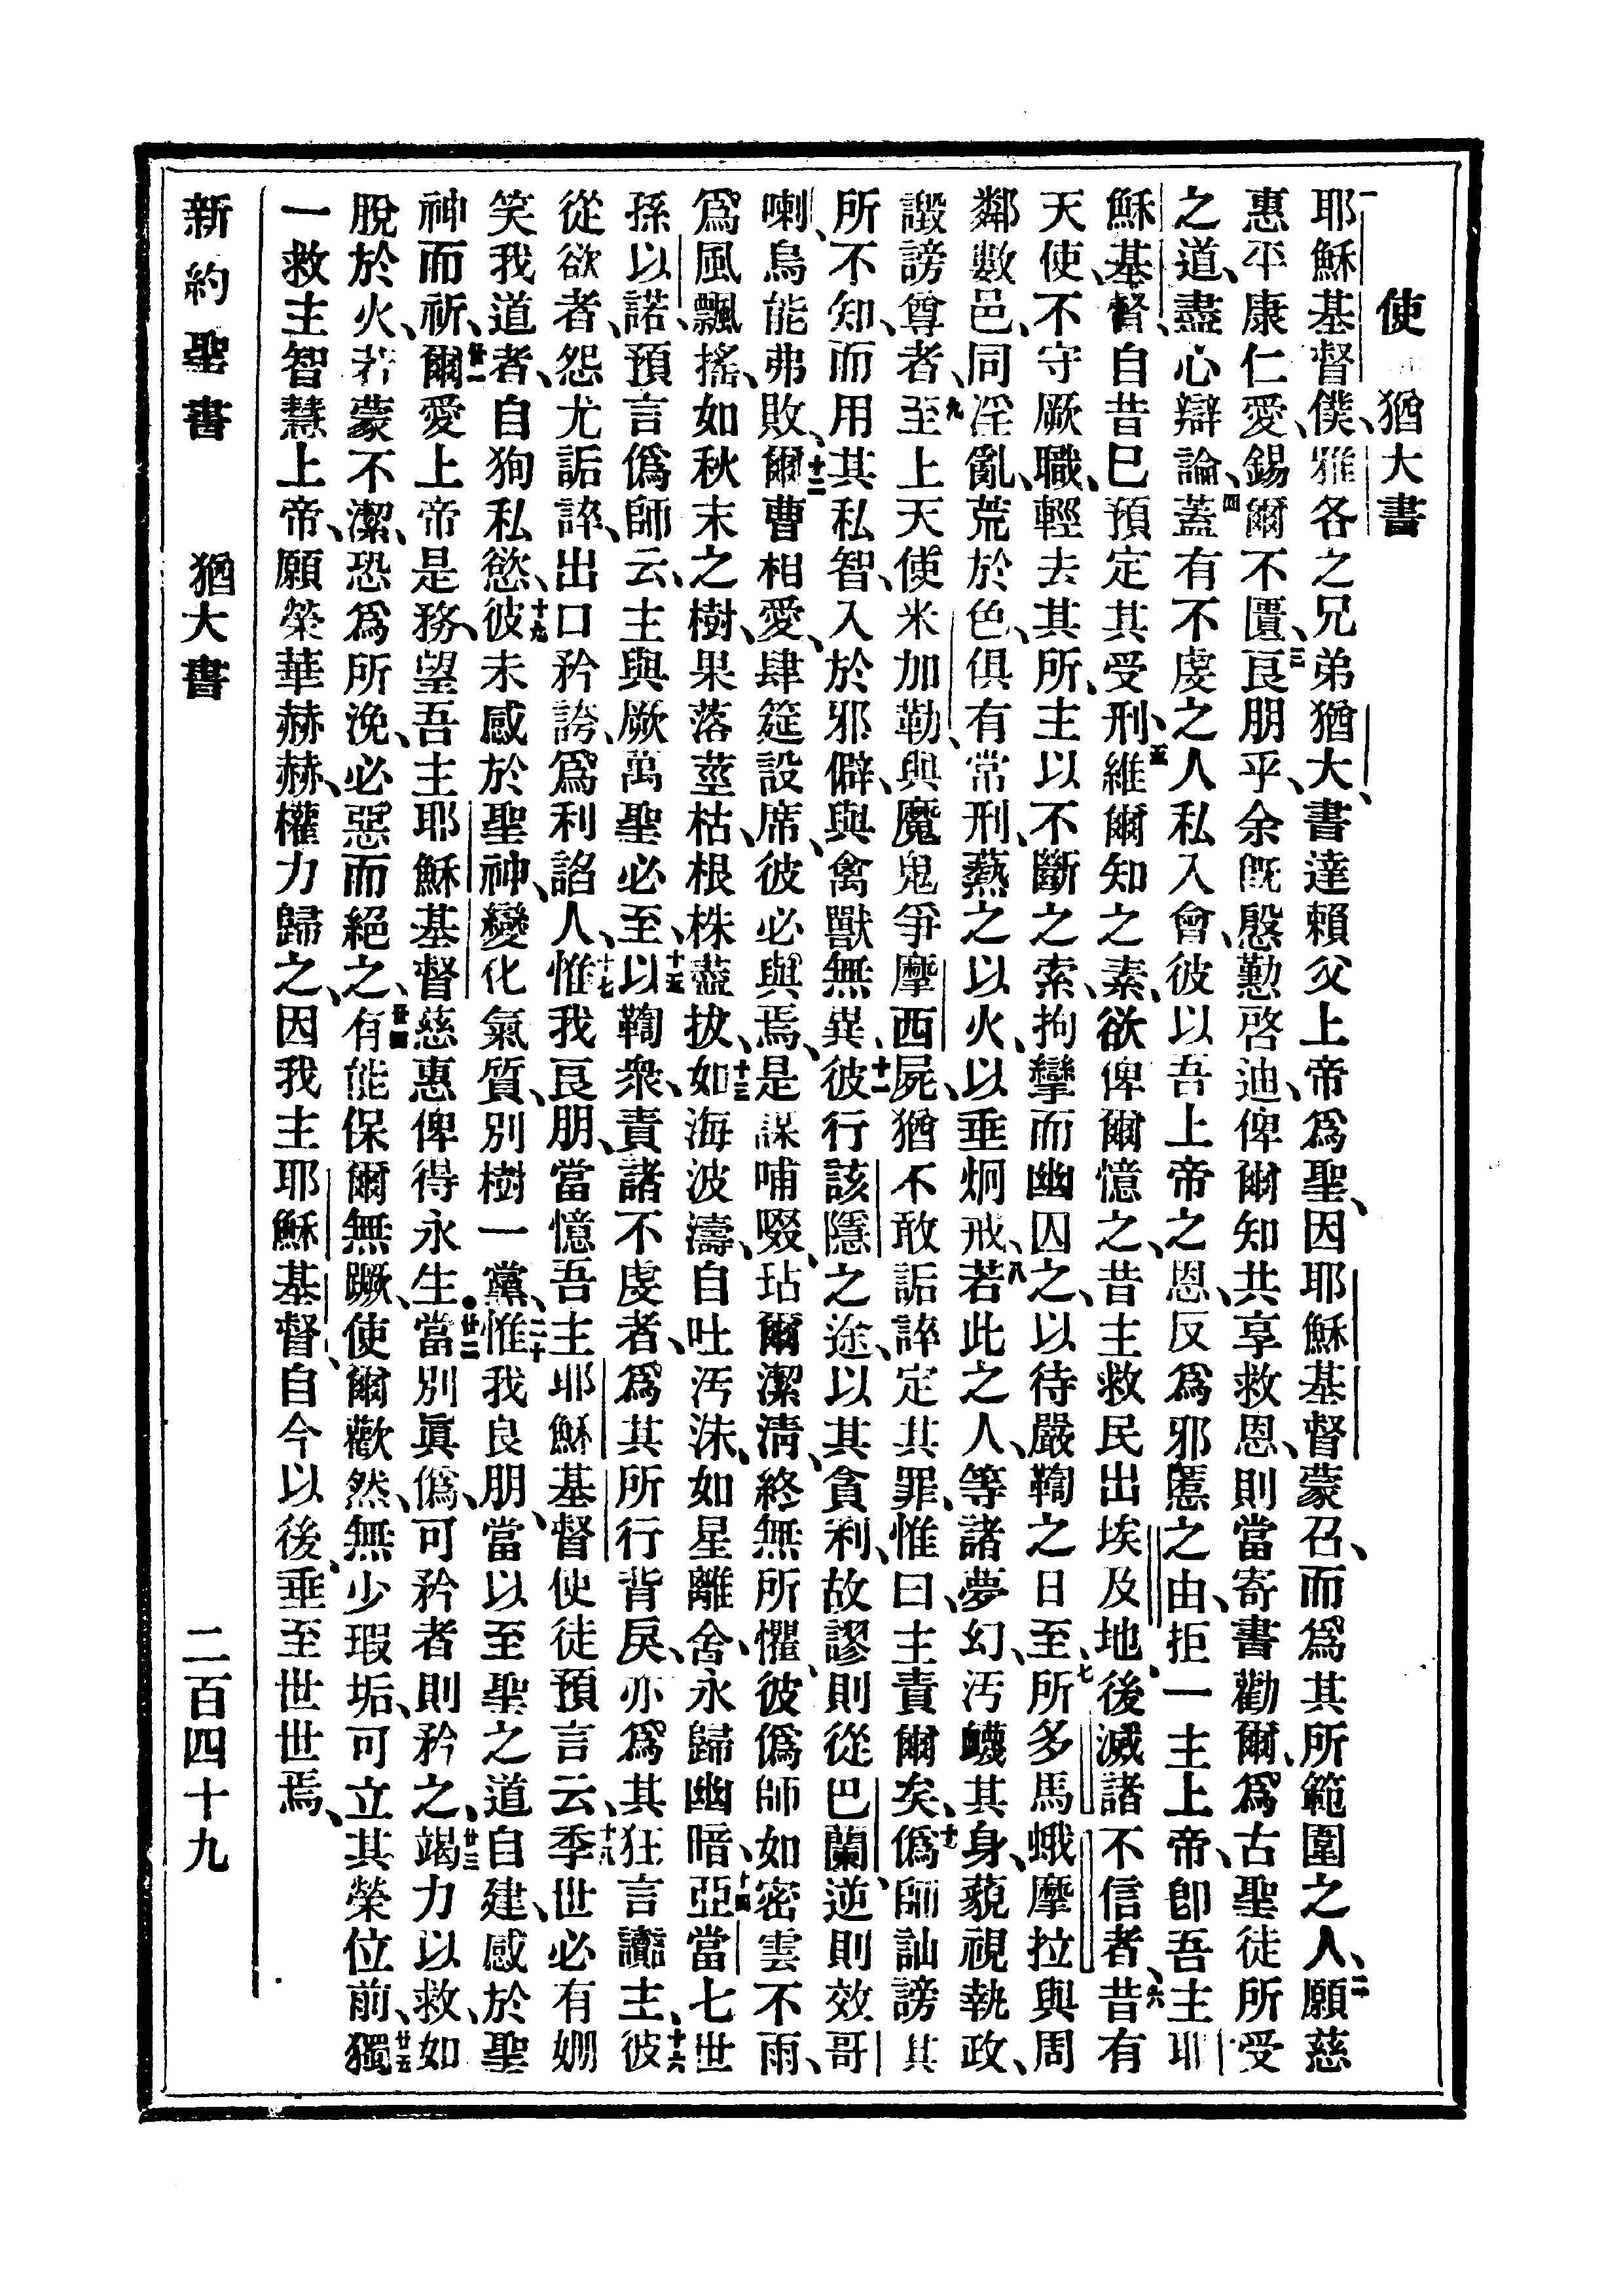 使 猶大書
一耶穌基督僕、雅各之兄弟猶大、書達賴父上帝爲聖、因耶穌基督蒙召、而爲其所範圍之人、二願慈
惠平康仁愛、錫爾不匱、三良朋乎、余旣慇懃啓迪、俾爾知共享救恩、則當寄書勸爾、爲古聖徒所受
之道、盡心辯論、四蓋有不虔之人、私入會、彼以吾上帝之恩、反爲邪慝之由、拒一主上帝、卽吾主耶
穌基督、自昔已預定其受刑、五維爾知之素、欲俾爾憶之、昔主救民出埃及地、後滅諸不信者、六昔有
天使、不守厥職、輕去其所、主以不斷之索、拘攣而幽囚之、以待嚴鞫之日至、七所多馬蛾摩拉與周
鄰數邑、同淫亂、荒於色、俱有常刑、爇之以火、以垂炯戒、八若此之人、等諸夢幻、汚衊其身、藐視執政、
譭謗尊者、九至上天使米加勒、與魔鬼爭摩西屍、猶不敢詬誶定其罪、惟曰、主責爾矣、十僞師訕謗其
所不知、而用其私智、入於邪僻、與禽獸無異、十一彼行該隱之途、以其貪利、故謬則從巴蘭、逆則效哥
喇、烏能弗敗、十二爾曹相愛、肆筵設席、彼必與焉、是謀哺啜、玷爾潔淸、終無所懼、彼僞師如密雲不雨、
爲風飄搖、如秋末之樹、果落莖枯、根株盡拔、十三如海波濤、自吐汚沬、如星離舍、永歸幽暗、十四亞當七世
孫以諾、預言僞師云、主與厥萬聖必至、十五以鞫衆、責諸不虔者、爲其所行背戾、亦爲其狂言讟主、十六彼
從欲者、怨尤詬誶、出口矜誇、爲利諂人、十七惟我良朋、當憶吾主耶穌基督使徒預言云、十八季世必有姍
笑我道者、自狥私慾、十九彼未感於聖神、變化氣質、別樹一黨、二十惟我良朋、當以至聖之道自建、感於聖
神而祈、廿一爾愛上帝是務、望吾主耶穌基督慈惠俾得永生、廿二當別眞僞、可矜者則矜之、廿三竭力以救、如
脫於火、若蒙不潔、恐爲所浼、必惡而絕之、廿四有能保爾無蹶、使爾歡然、無少瑕垢、可立其榮位前、廿五獨
一救主智慧上帝、願榮華赫赫、權力歸之、因我主耶穌基督、自今以後、垂至世世焉、
新約聖書 猶大書 二百四十九